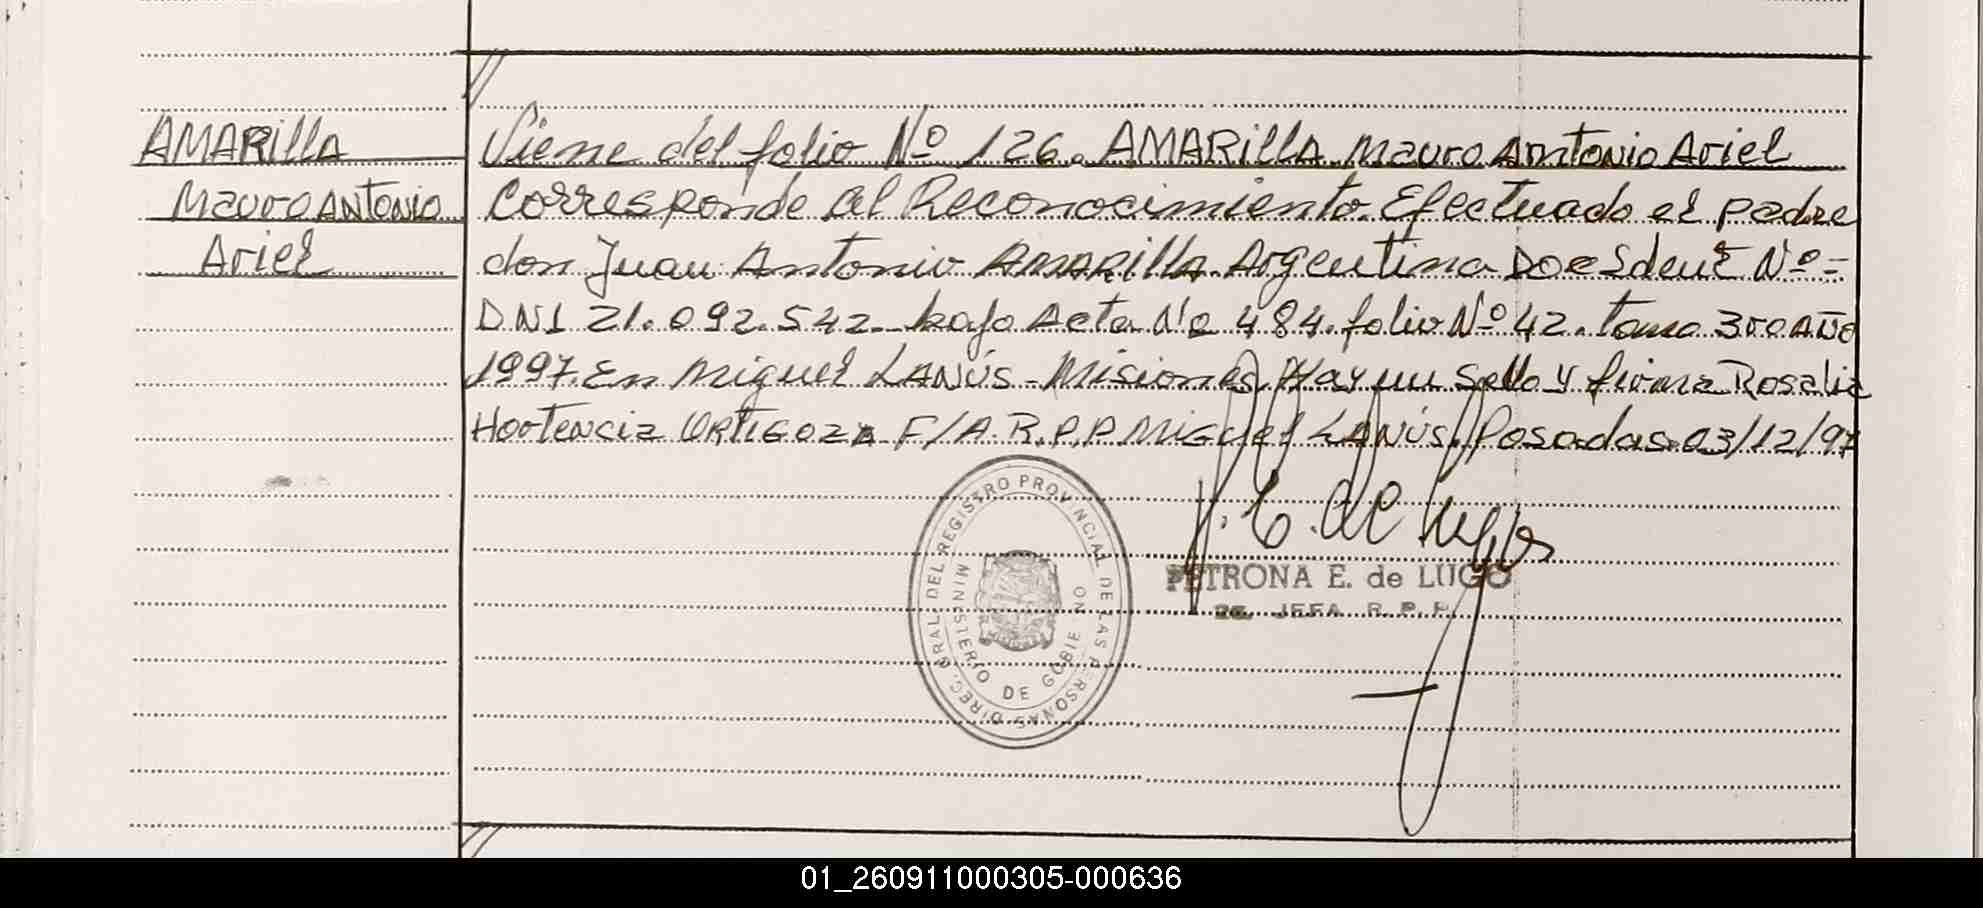 AMARILLA
Mauro ANTONIO
Ariel
Viene del folio Nº 126. AMARILLA Mauro Antonio Ariel
Corresponde al Reconocimiento. Efectuado el padre
don Juan Antonio AMARILLA. Argentina Nº=
DNI 21.092.542. bajo Acta Nº 484. folio Nº 42. tomo 3ro AÑO
1997. En Miguel LANÚS - Misiones. Hay un Sello y firma Rosalia
Hortencia ORTIGOZA F/A. R.P.P Miguel LANÚS. Posadas 03/12/97
DIREC. GRAL. DEL REGISTRO PROVINCIAL DE LAS PERSONAS
MINISTERIO DE GOBIE NO
P. E. de Lugo
PETRONA E. de LUGO
JEFA R. P. P.
01_260911000305-000636